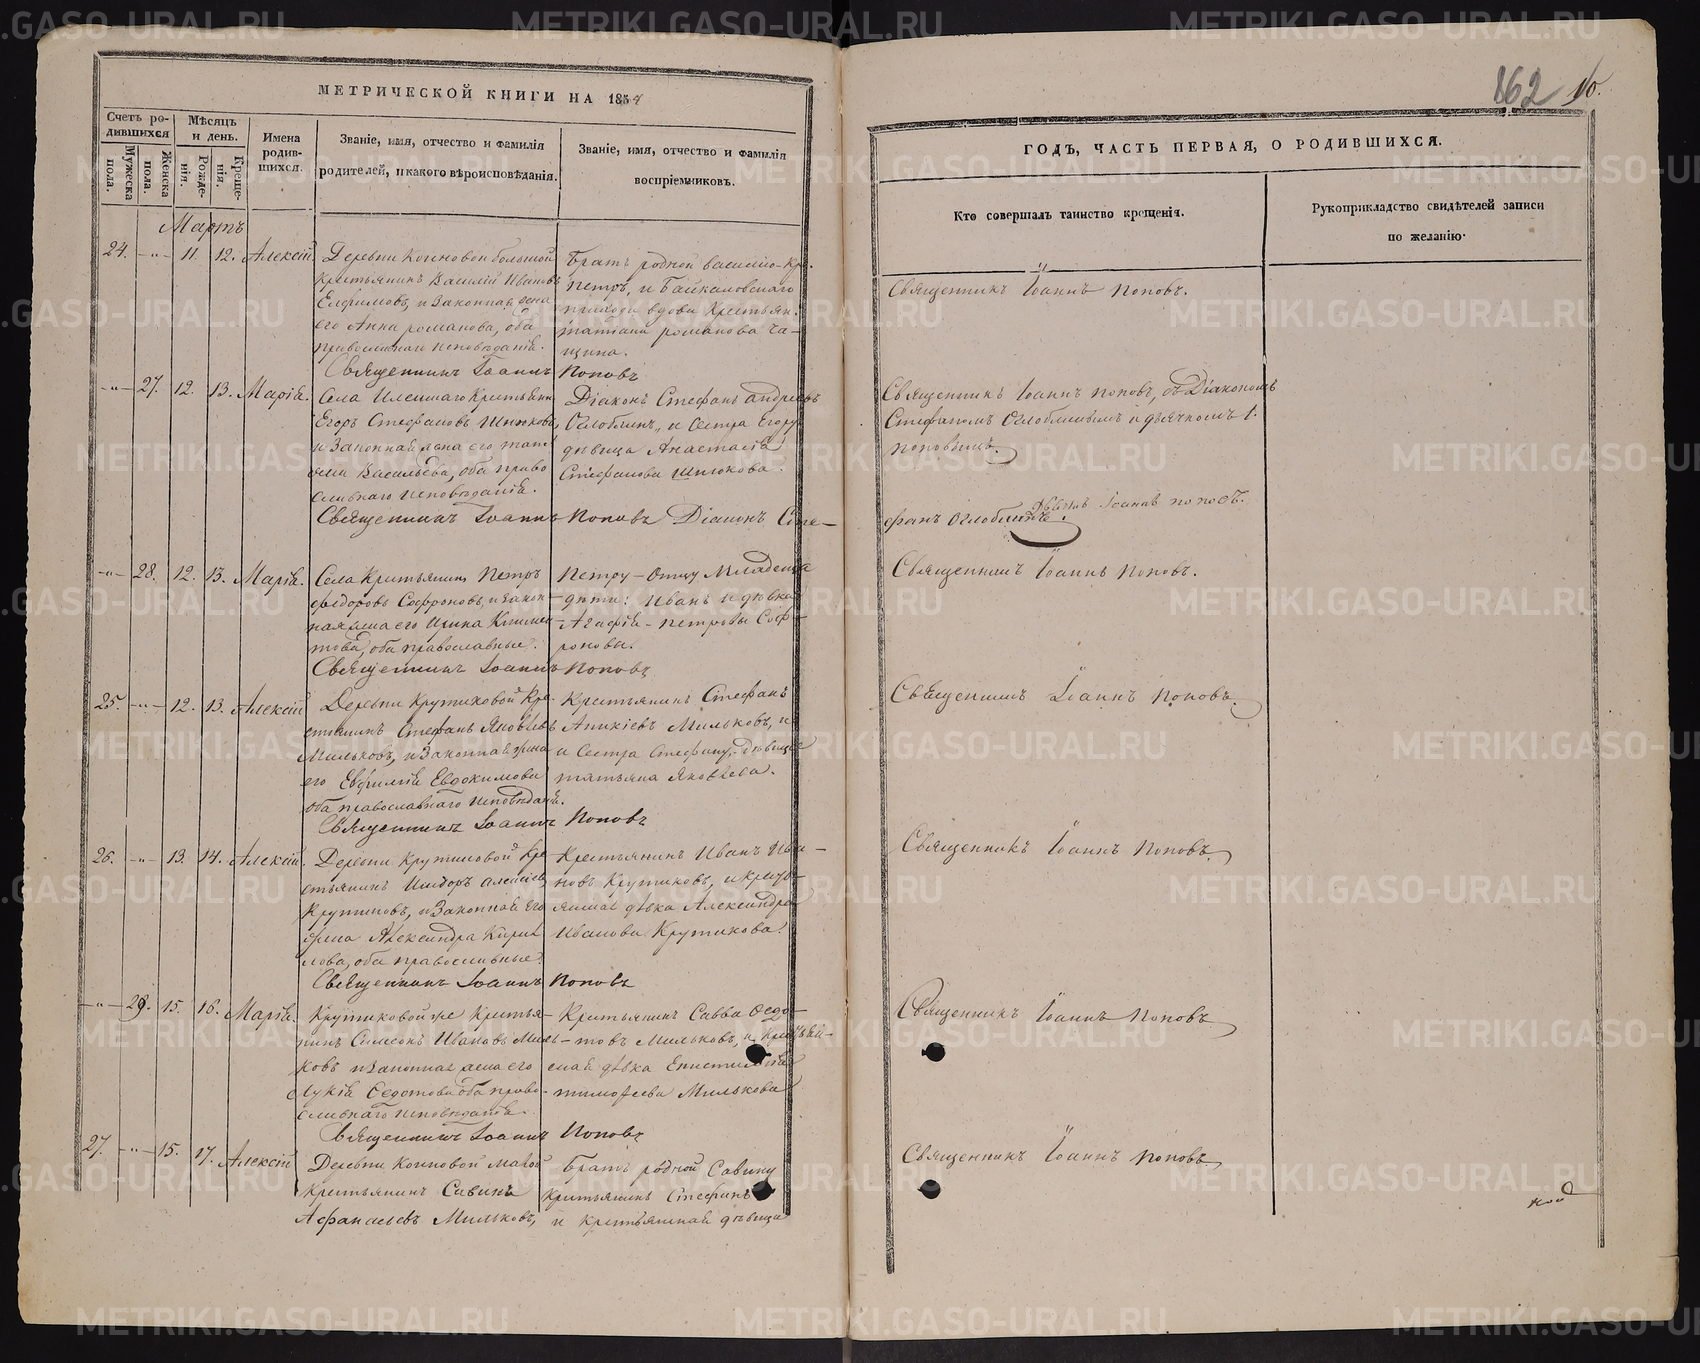 МЕТРИЧЕСКОЙ КНИГИ НА 1854
Счетъ родившихся
Мужеска пола.
Женска пола.
Мѣсяцъ и день.
Рожденія.
Крещенія.
Имена родившихся.
Званіе, имя, отчество и фамилія родителей, и какого вѣроисповѣданія.
Званіе, имя, отчество и фамилія воспріемниковъ.
Мартъ
24. -"- 11. 12. Алексій
Деревни большой
крестьянинъ Василій Ивановъ
Елфимовъ, и законная жена
его Анна романова, оба
православнаго исповѣданія.
Братъ родной василію-кре.
петръ, и Байкаловскаго
прихода вдова крестьян.
татіана романова
Священникъ Іоаннъ Поповъ
-"- 27. 12. 13. Марія.
Села крестьянинъ
Егоръ Стефановъ Шнюковъ,
и законная жена его тать-
яна Васильева, оба право
славнаго исповѣданія.
Діаконъ Стефанъ андреевъ
Оглоблинъ, и сестра Егору
дѣвица Анастасія
Стефанова Шнюкова.
Священникъ Іоаннъ Поповъ Діаконъ Сте-
-"- 28. 12. 13. Марія.
Села Крестьянинъ Петръ
федоровъ Софроновъ, и закон-
ная жена его
това, оба православные.
Петру-отцу Младенца
дѣти: Иванъ и дѣвка
Агафія-петровы Соф-
роновы.
Священникъ Іоаннъ Поповъ
25. -"- 12. 13. Алексій
Деревни Крутиковой Кре-
стьянинъ Стефанъ Яковлевъ
Мильковъ, и законная жена
его Евфимія Евдокимова
оба православнаго исповѣданія.
Крестьянинъ Стефанъ
Аникіевъ Мильковъ, и
и Сестра Стефану, дѣвица
татьяна Яковлева.
Священникъ Іоаннъ Поповъ
26. -"- 13. 14. Алексій.
Деревни Крутиковой Кре
стьянинъ алексіевъ
Крутиковъ, и законная его
жена Александра Кирил
лова, оба православные.
Крестьянинъ Иванъ Ива-
новъ Крутиковъ, и кресть-
янская дѣвка Александра
Иванова Крутикова.
Священникъ Іоаннъ Поповъ
-"- 29. 15. 16. Марія.
Крутиковой же Крестья-
нинъ Симеонъ Ивановъ Миль-
ковъ и законная жена его
Лукія Федотова оба право-
славнаго исповѣданія.
Крестьянинъ Савва Федо-
товъ Мильковъ, и крестьян-
ская дѣвка
тимофеева Милькова
Священникъ Іоаннъ Поповъ
27. -"- 15. 17. Алексій
Деревни малой
Крестьянинъ Савинъ
Афанасьевъ Мильковъ,
Братъ родной Савину
Крестьянинъ Стефанъ
и крестьянская дѣвица
162 10.
ГОДЪ, ЧАСТЬ ПЕРВАЯ, О РОДИВШИХСЯ.
Кто совершалъ таинство крещенія.
Рукоприкладство свидѣтелей записи по желанію.
Священникъ Іоаннъ Поповъ.
Священникъ Іоаннъ Поповъ, съ Діакономъ
Стефаномъ Оглоблинымъ и дьячкомъ І.
поповымъ.
фанъ Оглоблинъ. Іоаннъ поповъ.
Священникъ Іоаннъ Поповъ.
Священникъ Іоаннъ Поповъ.
Священникъ Іоаннъ Поповъ.
Священникъ Іоаннъ Поповъ
Священникъ Іоаннъ Поповъ.
METRIKI.GASO-URAL.RU